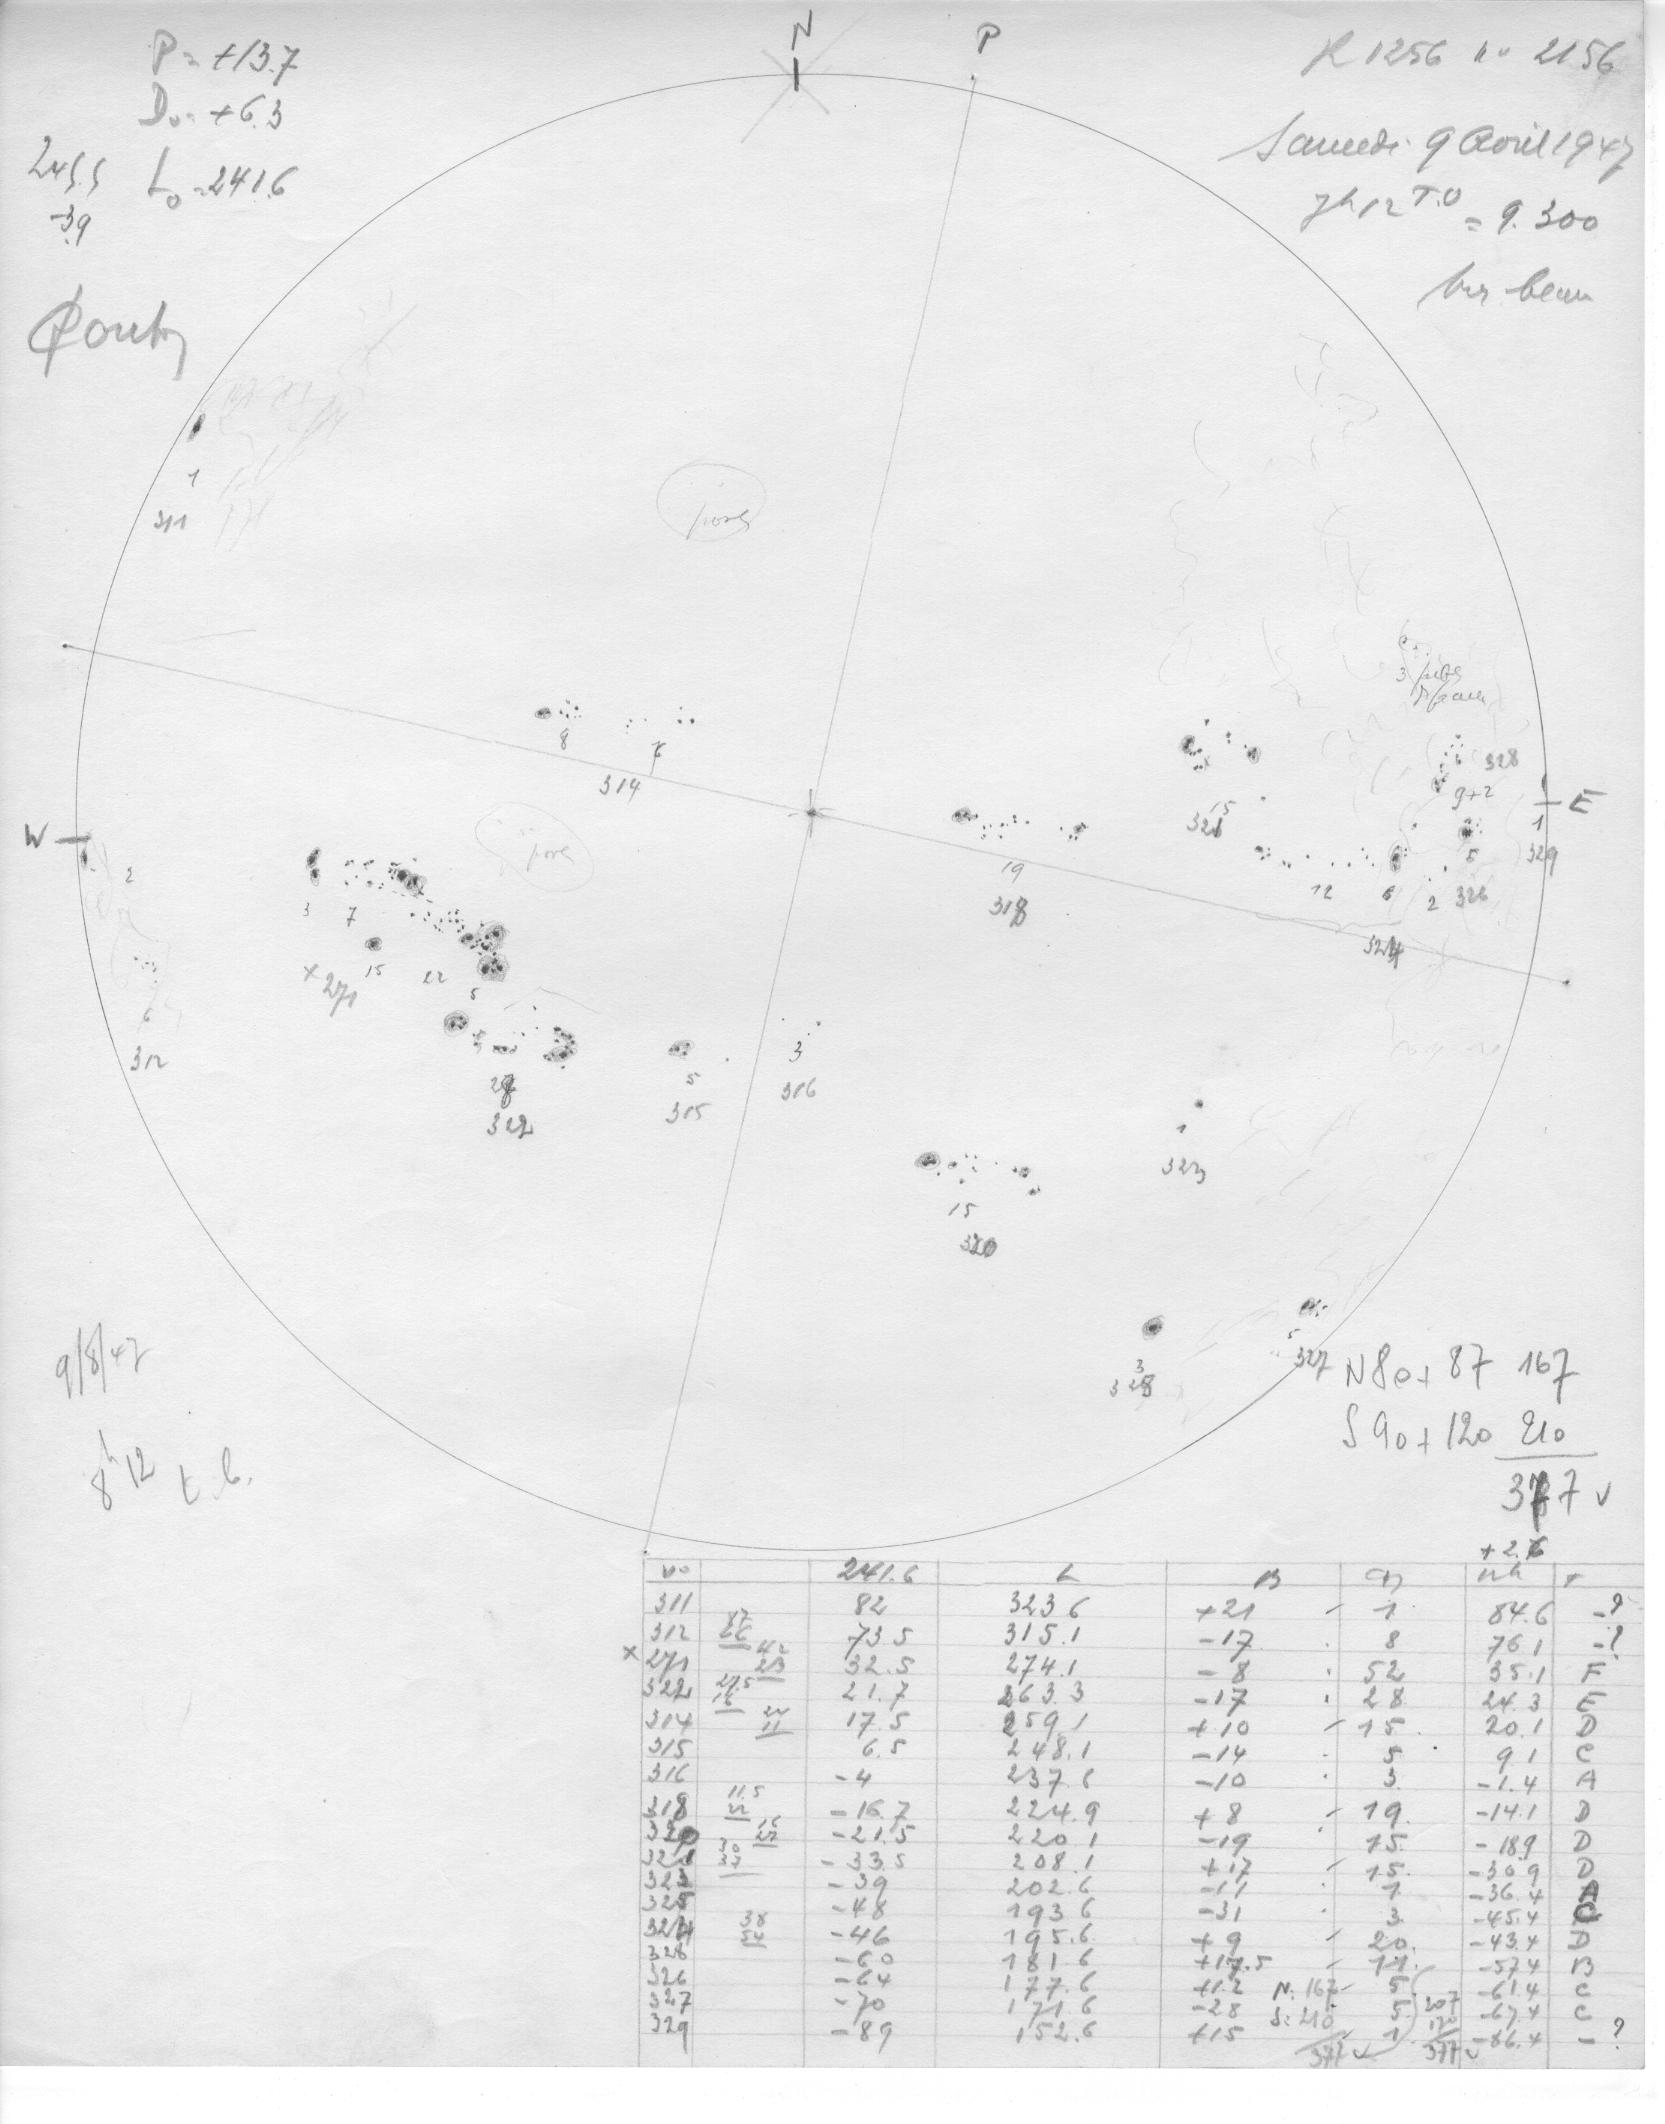 P = +13.7
Do = +6.3
Lo = 241.6
245.5
-3.9
N
P
R 1256 no 2156
Samedi 9 Août 1947
7h12 T.U = 9.300
très beau
1
311
pores
3 pores
8
7
314
328
9+2
E
1
329
15
321
W
pores
2
19
318
12
8
2
5
326
324
3
7
15
22
5
x 271
6
312
28
322
5
315
3
316
1
323
15
320
3
325
5
327
N 80 + 87 167
S 90 + 120 210
377 v
9/8/47
8h12 t.b.
+2.6
No 241.6 L B
311 82 323.6 +21 - 1 84.6 -?
312 73.5 315.1 -17 . 8 76.1 -?
x 271 32.5 274.1 -8 . 52 35.1 F
322 21.7 263.3 -17 . 28 24.3 E
314 17.5 259.1 +10 - 15 20.1 D
315 6.5 248.1 -14 . 5 9.1 C
316 -4 237.6 -10 . 3 -1.4 A
318 -16.7 224.9 +8 - 19 -14.1 D
320 -21.5 220.1 -19 . 15 -18.9 D
321 -33.5 208.1 +17 - 15 -30.9 D
323 -39 202.6 -11 . 1 -36.4 A
325 -48 193.6 -31 . 3 -45.4 C
324 -46 195.6 +9 - 20 -43.4 D
328 -60 181.6 +17.5 - 11 -57.4 B
326 -64 177.6 +12 N: 167 - 5 -61.4 C
327 -70 171.6 -28 S: 210 5 207 -67.4 C
329 -89 152.6 +15 - 1 170 -86.4 - ?
377 v 377 v